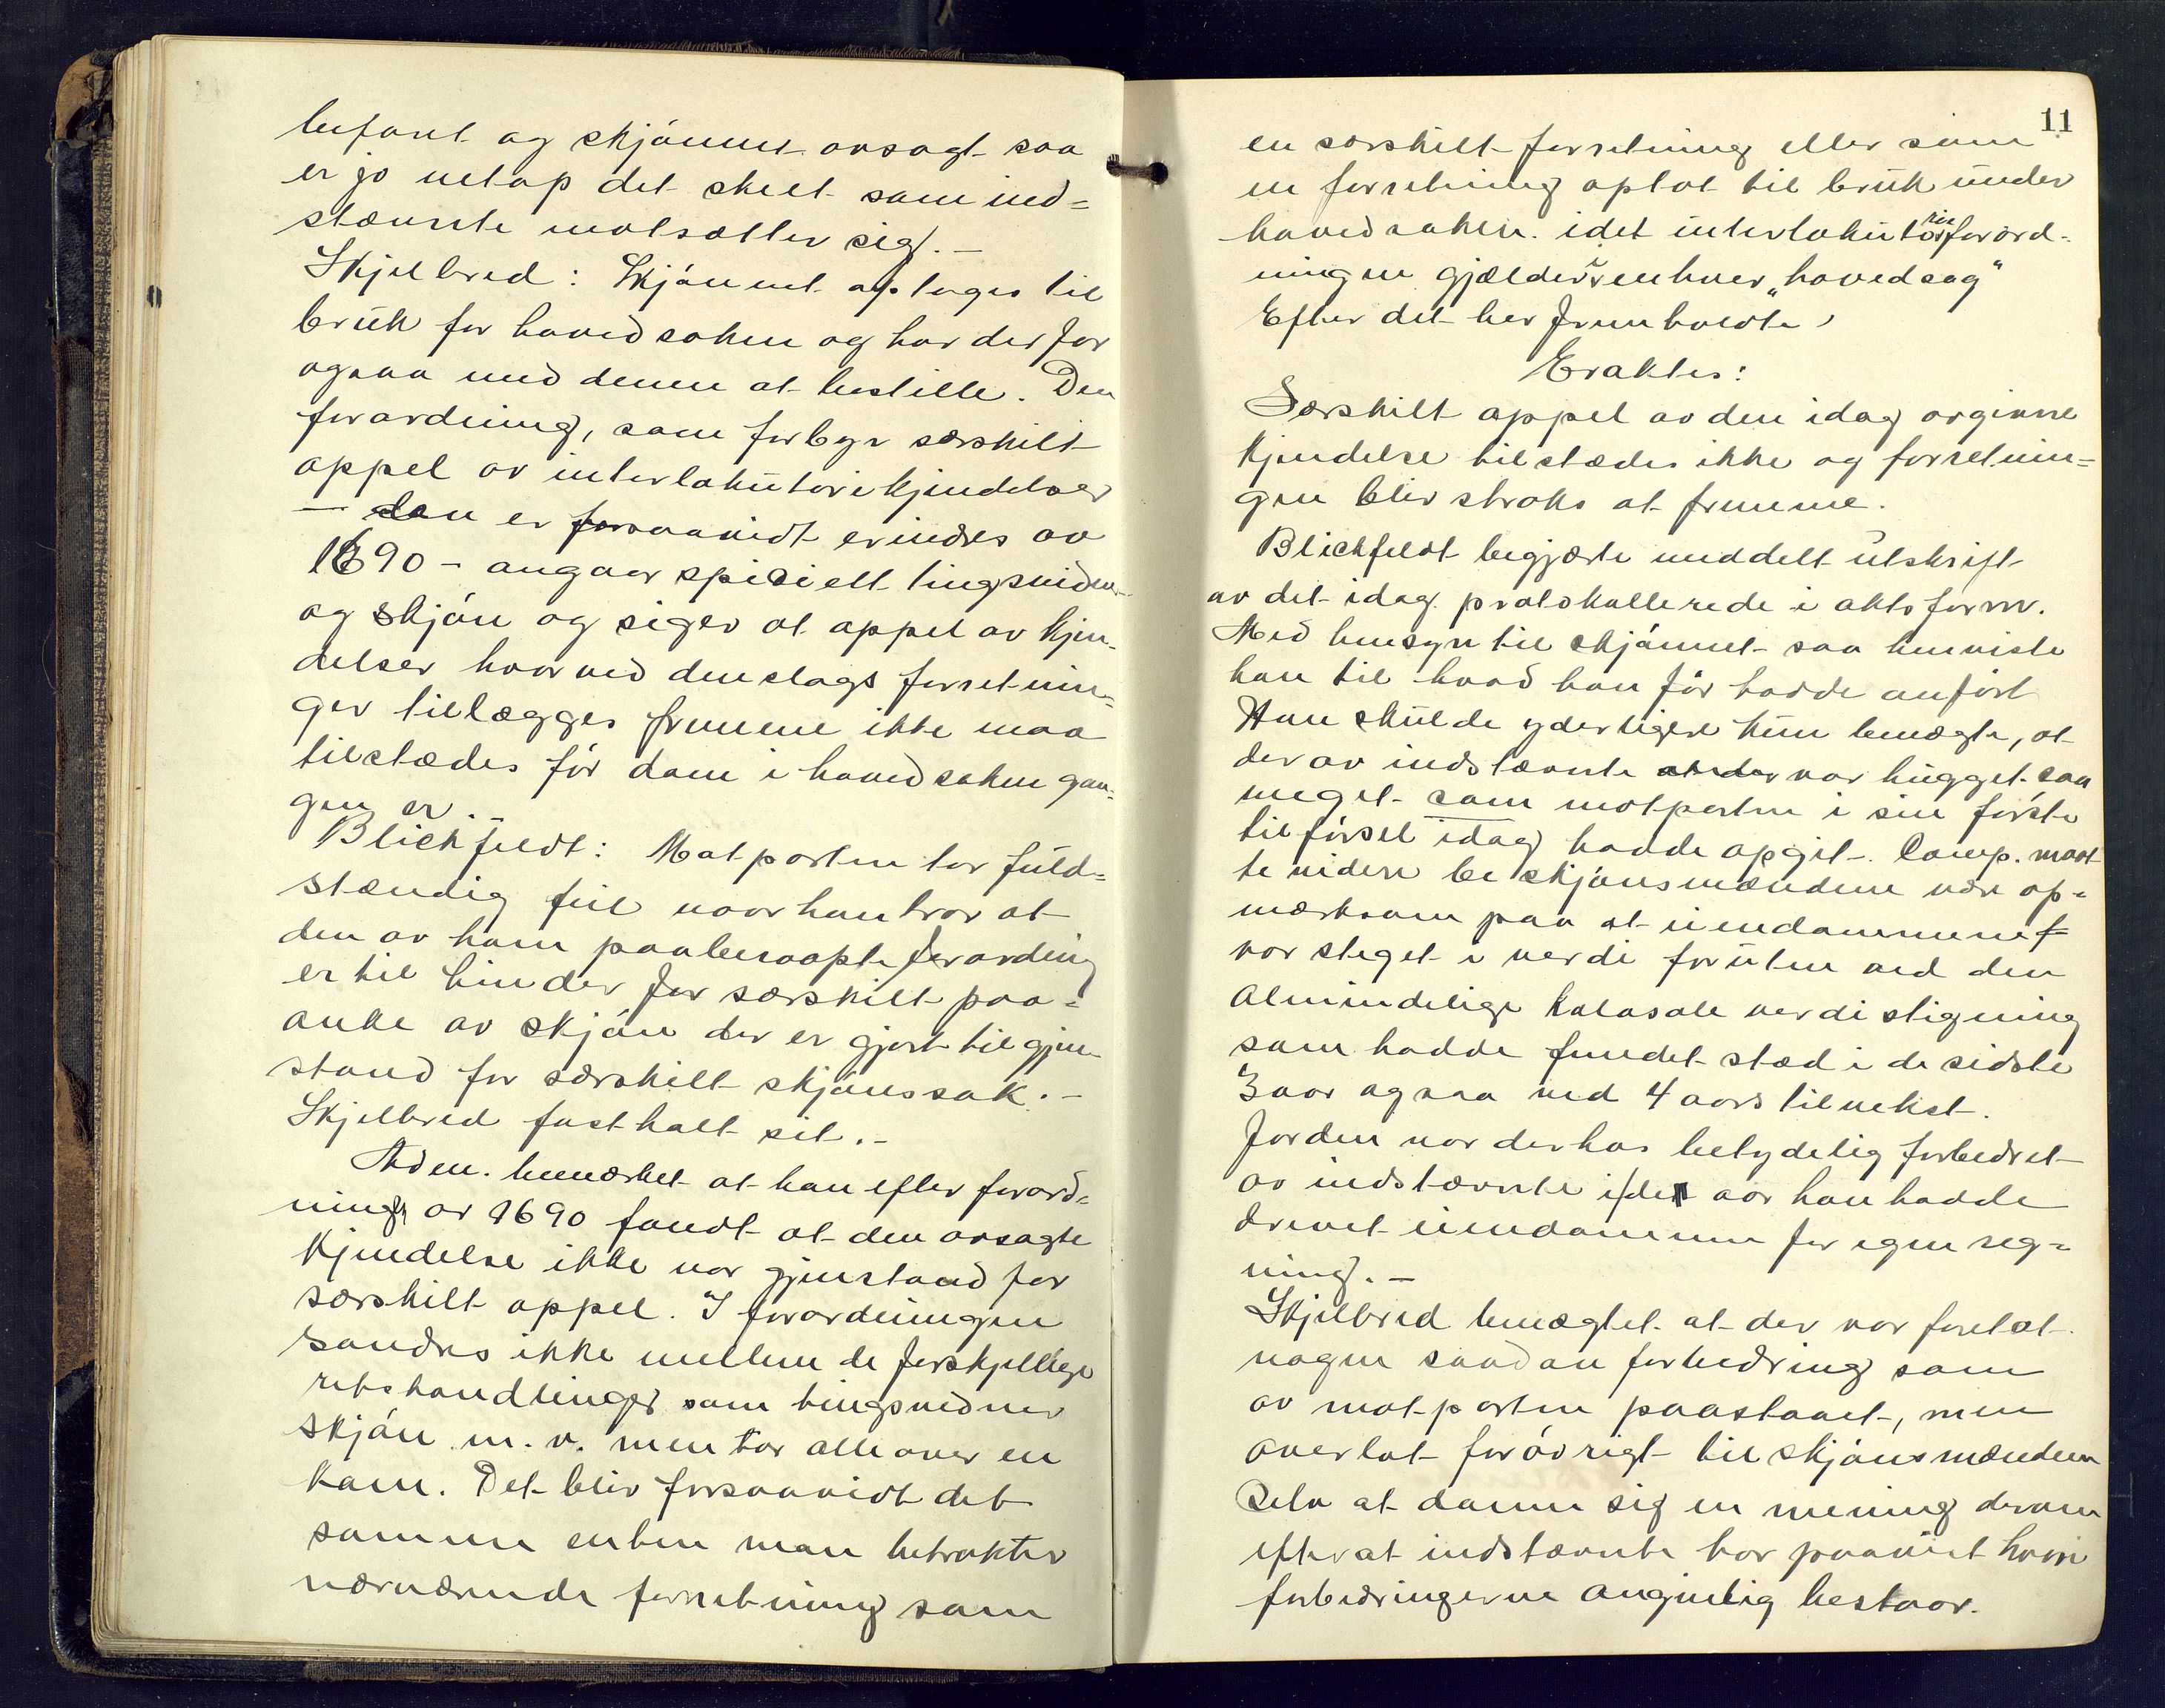 befaret og skjønnet avsagt saa
er jo netop det skeet som ind=
stævnte motsætter sig. –
Skjelbred: Skjønnet optages til
bruk for hovedsaken og har derfor
ogsaa med denne at bestille. Den
forordning, som forbyr særskilt
appel av interlokutorikjendelser
– den er forsaavidt erindres av
1690 – angaar specielt tingsvidner
og skjøn og siger at appel av kjen-
delser hvorved denslags forretnin=
ger tillægges fremme ikke maa
tilstædes før dom i hovedsaken gan=
gen er.
Blichfeldt: Motparten tar fuld=
stændig feil naar han tror at
den av ham paaberaapte forordning
er til hinder for særskilt paa=
anke av skjøn der er gjort til gjen-
stand for særskilt skjønssak. –
Skjelbred fastholt sit. –
Adm. bemærket at han efter forord=
ningen av 1690 fandt at den avsagte
kjendelse ikke var gjenstand for
særskilt appel. I forordningen
sondres ikke mellem de forskjellige
retshandlinger som tingsvidner
skjøn m. v. men tar alle over en
kam. Det blir forsaavidt det
samme enten man betrakter
nærværende forretning som
11
en særskilt forretning eller som
en forretning optat til bruk under
hovedsaken. idet interlokutorieforord-
ningen gjælder enhver „hovedsag"
Efter det her fremholdte
Eraktes:
Særskilt appel av den idag avgivne
kjendelse tilstædes ikke og forretnin=
gen blir straks at fremme.
Blichfeldt begjærte meddelt utskrift
av det idag protokollerede i aktsform.
Med hensyn til skjønnet saa henviste
han til hvad han før hadde anført
Han skulde yderligere kun benægte, at
der av indstævnte var hugget saa
meget som motparten i sin første
tilførsel idag hadde opgit. Comp. maat
te videre be skjønsmændene være op=
mærksom paa at eiendommene
var steget i verdi foruten ved den
almindelige kolosale verdistigning
som hadde fundet sted i de sidste
3 aar ogsaa ved 4 aars tilvekst.
Jorden var derhos betydelig forbedret
av indstævnte i de aar han hadde
drevet eiendommen for egen reg=
ning. –
Skjelbred benægtet at der var foretat
nogen saadan forbedring som
av motparten paastaaet, men
overlot forøvrigt til skjønsmændene
selv at danne sig en mening derom
efterat indstævnte har paavist hvori
forbedringerne angivelig bestaar.